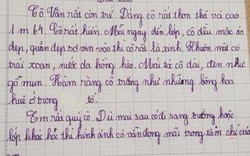 Cô Vân rất còn trẻ. Dáng cô rất thon thả và cao
1 m 64. Cô rất hiền. Mỗi ngày đến lớp, cô đều mặc áo
đẹp, quần đẹp sơ vin vào thì cô rất là xinh. Khuôn mặt cô
trái xoan, nước da hồng hào. Mái tóc cô dài, đen như
gỗ mun. Hàm răng cô trắng như những bông hoa
huệ ở trong tố.
Em rất quý cô. Dù mai sau cô đi sang trường hoặc
lớp khác thì hình ảnh cô vẫn đọng mãi trong tâm chí của